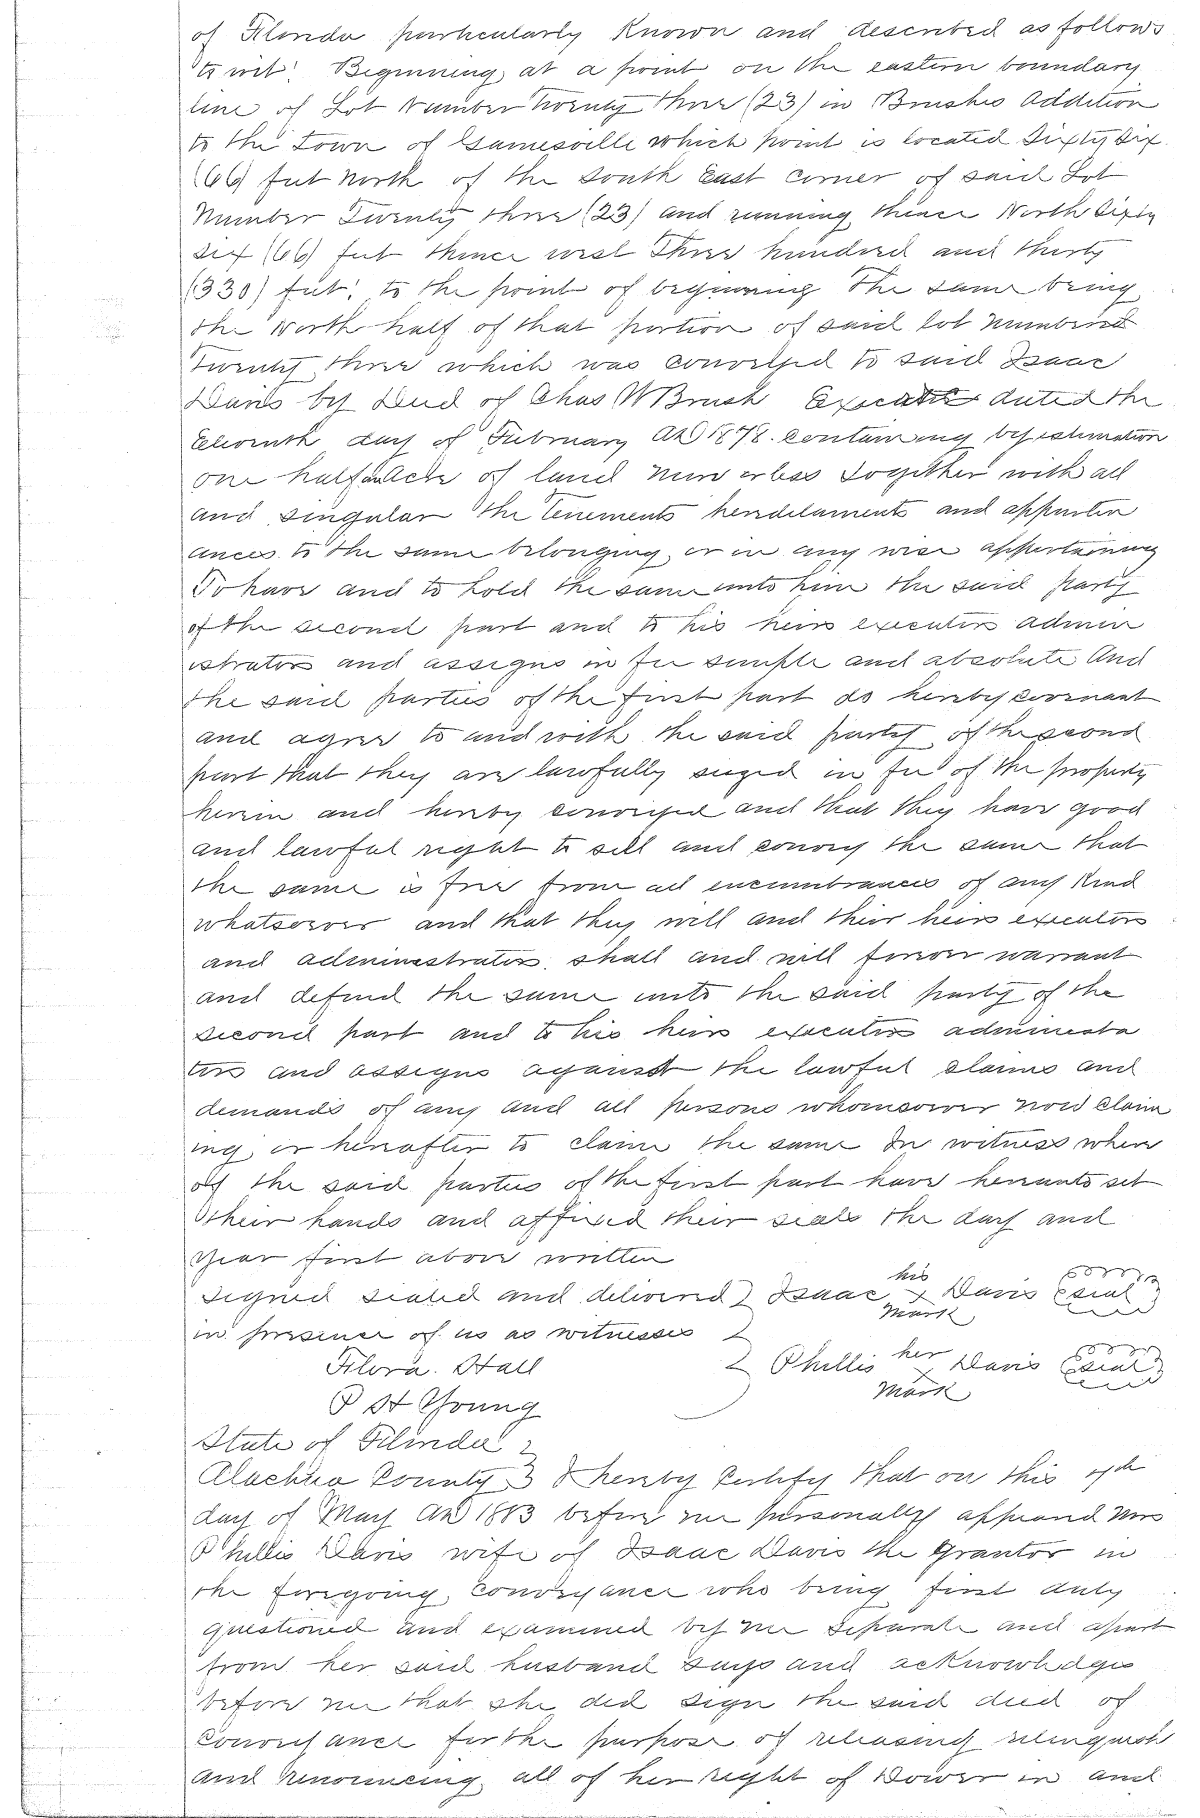 of Florida particularly known and described as follows
to wit: Beginning at a point on the eastern boundary
line of Lot Number Twenty three (23) in Brushs Addition
to the Town of Gainesville which point is located Sixty Six
(66) feet North of the South East corner of said Lot
Number Twenty three (23) and running thence North Sixty
six (66) feet thence west Three hundred and thirty
(330) feet; to the point of beginning The same being
the North half of that portion of said lot numbered
Twenty three which was conveyed to said Isaac
Davis by Deed of Chas W Brush dated the
Eleventh day of February AD 1878. containing by estimation
one half acre of land more or less Together with all
and singular the tenements heredetaments and appurten
ances to the same belonging or in any wise appertaining
To have and to hold the same unto him the said party
of the second part and to his heirs executors admin
istrators and assigns in fee simple and absolute And
the said parties of the first part do hereby covenant
and agree to and with the said party of the second
part that they are lawfully seized in fee of the property
herein and hereby conveyed and that they have good
and lawful right to sell and convey the same that
the same is free from all encumbrances of any kind
whatsoever and that they will and their heirs executors
and administrators shall and will forever warrant
and defend the same unto the said party of the
second part and to his heirs executors administra
tors and assigns against the lawful claims and
demands of any and all persons whomsoever now claim
ing or hereafter to claim the same In witness where
of the said parties of the first part have hereunto set
their hands and affixed their seals the day and
year first above written
Signed sealed and delivered } Isaac his x mark Davis (seal)
in presence of us as witnesses }
Flora. Hall } Phillis her x mark Davis (seal)
P H Young
State of Florida }
Alachua County } I hereby certify that on this 7th
day of May AD 1883 before me personally appeared Mrs
Phillis Davis wife of Isaac Davis the Grantor in
the foregoing conveyance who being first duly
questioned and examined by me separate and apart
from her said husband says and acknowledges
before me that she did sign the said deed of
Conveyance for the purpose of releasing relinquish
and renouncing all of her right of Dower in and